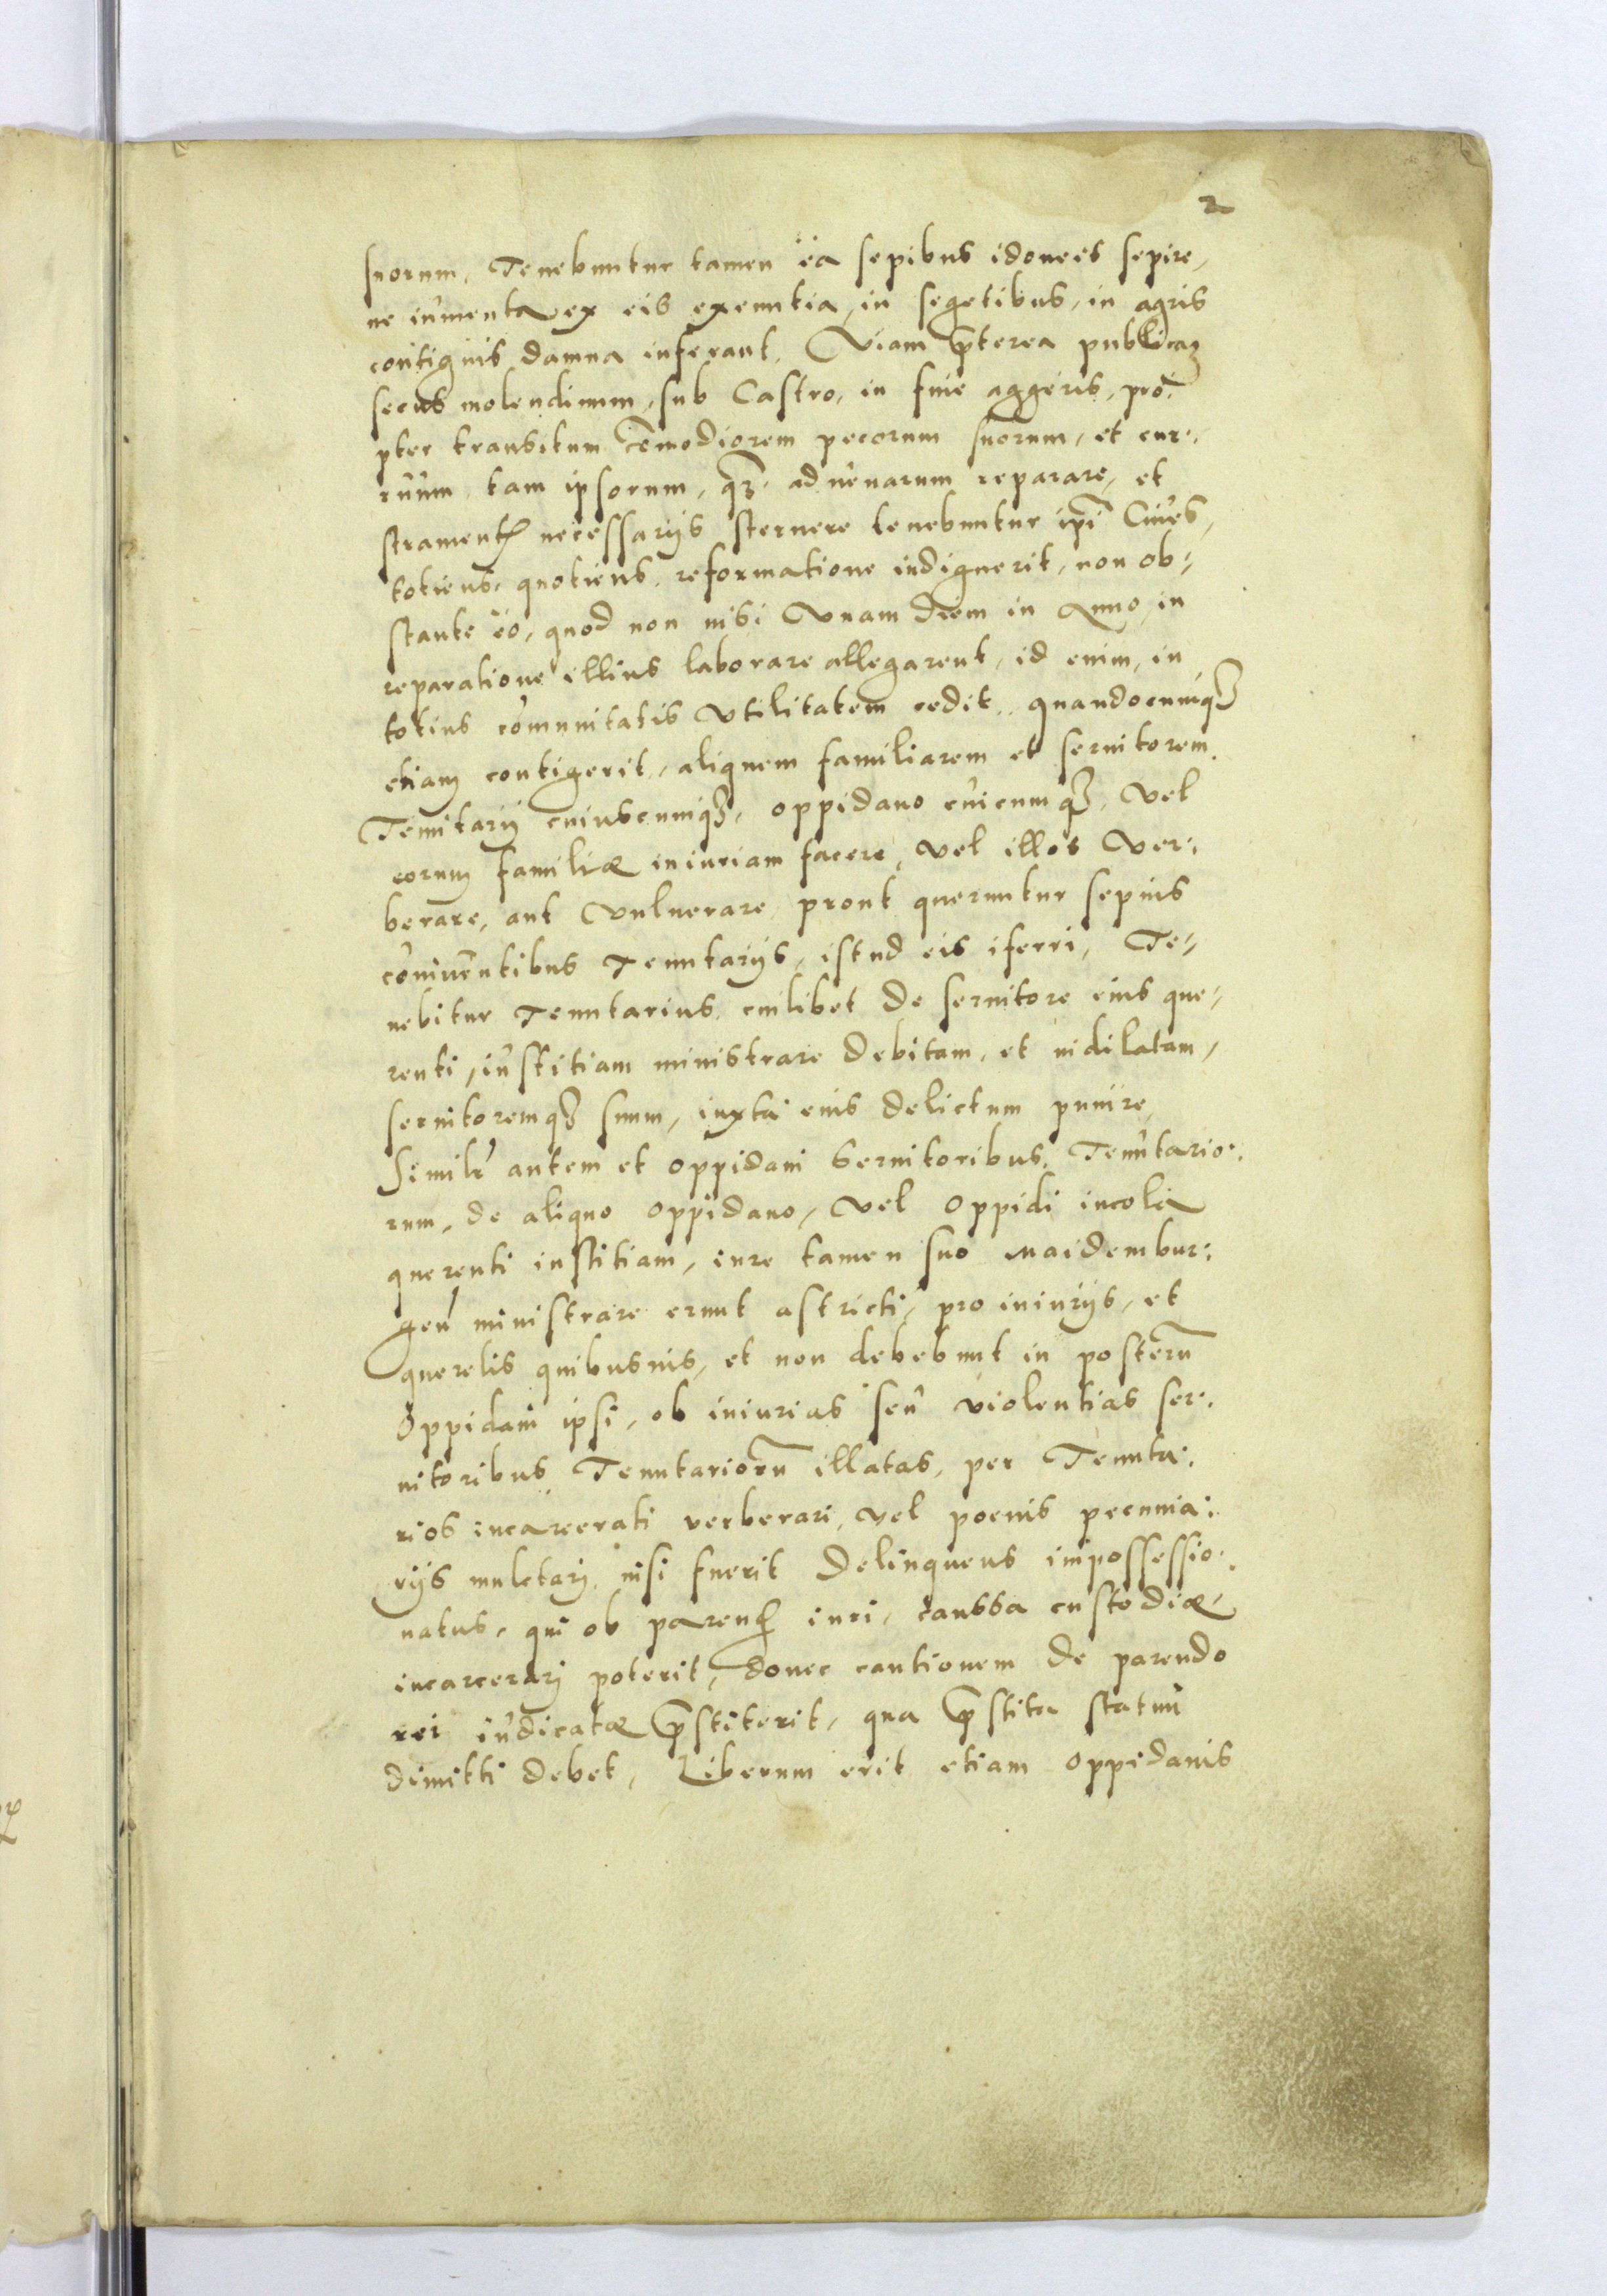 2
suorum, Tenebuntur tamen ea sepibus idoneis sepire,
ne iumenta ex eis exeuntia, in segetibus, in agris
contiguis damna inferant, Viam p̄terea publicaʒ
secus molendinum, sub Castro, in fine aggeris, pro:
pter transitum com̄odiorem pecorum suorum, et cur:
ruum tam ipsorum, q̄ʒ aduenarum reparare, et
stramentꝭ necessarijs sternere tenebuntur ip̄i Ciues,
totiens quotiens, reformatione indiguerit, non ob:
stante eo, quod non nisi Vnam diem in Anno, in
reparatione illius laborare allegarent, id enim, in
totius com̄unitatis Vtilitatem cedit, quandocumqʒ
etiaʒ contigerit, aliquem familiarem et seruitorem
Tenutarij cuiuscumqʒ, oppidano cuicumqʒ, Vel
eorum familiæ iniuriam facere, Vel illos Ver:
berare, aut Vulnerare, prout queruntur sepius
conniuentibus Tenutarijs, istud eis iferri, Te:
nebitur Tenutarius, cuilibet de seruitore eius que:
renti, iustitiam ministrare debitam, et indilatam,
seruitoremqʒ suum, iuxta eius delictum punire,
Similr̄ autem et oppidani Seruitoribus, Tenutario:
rum, de aliquo oppidano, Vel Oppidi incola
querenti iustitiam, iure tamen suo Maidembur:
gen̄ ministrare erunt astricti, pro iniurijs, et
querelis quibusuis, et non debebunt in posterū
Oppidani ipsi, ob iniurias seu violentias ser:
uitoribus, Tenutariorū illatas, per Tenuta:
rios incarcerati verberari, vel poenis pecunia:
rijs mulctarj, nisi fuerit Delinquens impossessio:
natus, qui ob parenꝭ iuri, caussa custodiæ,
incarcerarj poterit, donec cautionem de parendo
rei iudicatæ p̄stiterit, qua p̄stita statim
dimitti debet, Liberum erit etiam oppidanis